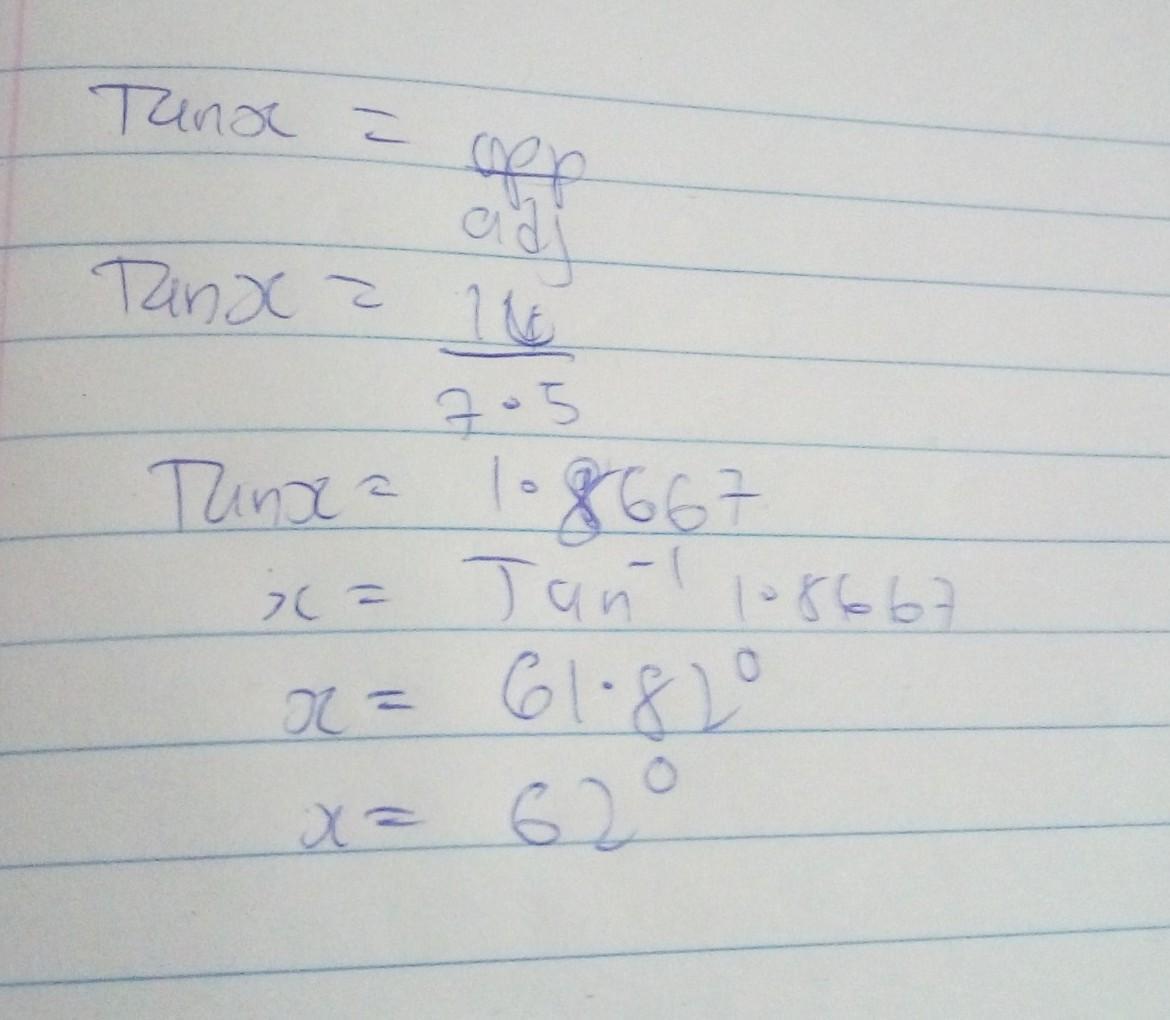 Tanx = opp
adj
Tanx = 14
7.5
Tanx = 1.8667
x = Tan⁻¹ 1.8667
x = 61.82°
x = 62°